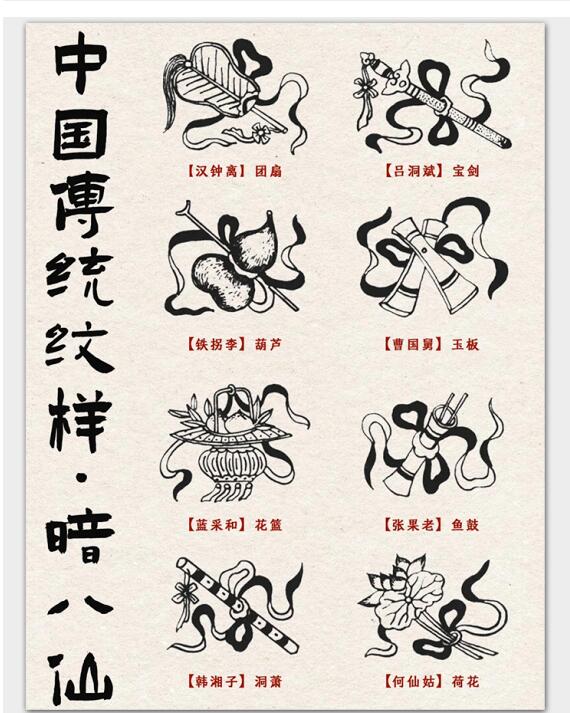 中国傳统纹样·暗八仙
【汉钟离】团扇
【吕洞斌】宝剑
【铁拐李】葫芦
【曹国舅】玉板
【蓝采和】花篮
【张果老】鱼鼓
【韩湘子】洞萧
【何仙姑】荷花